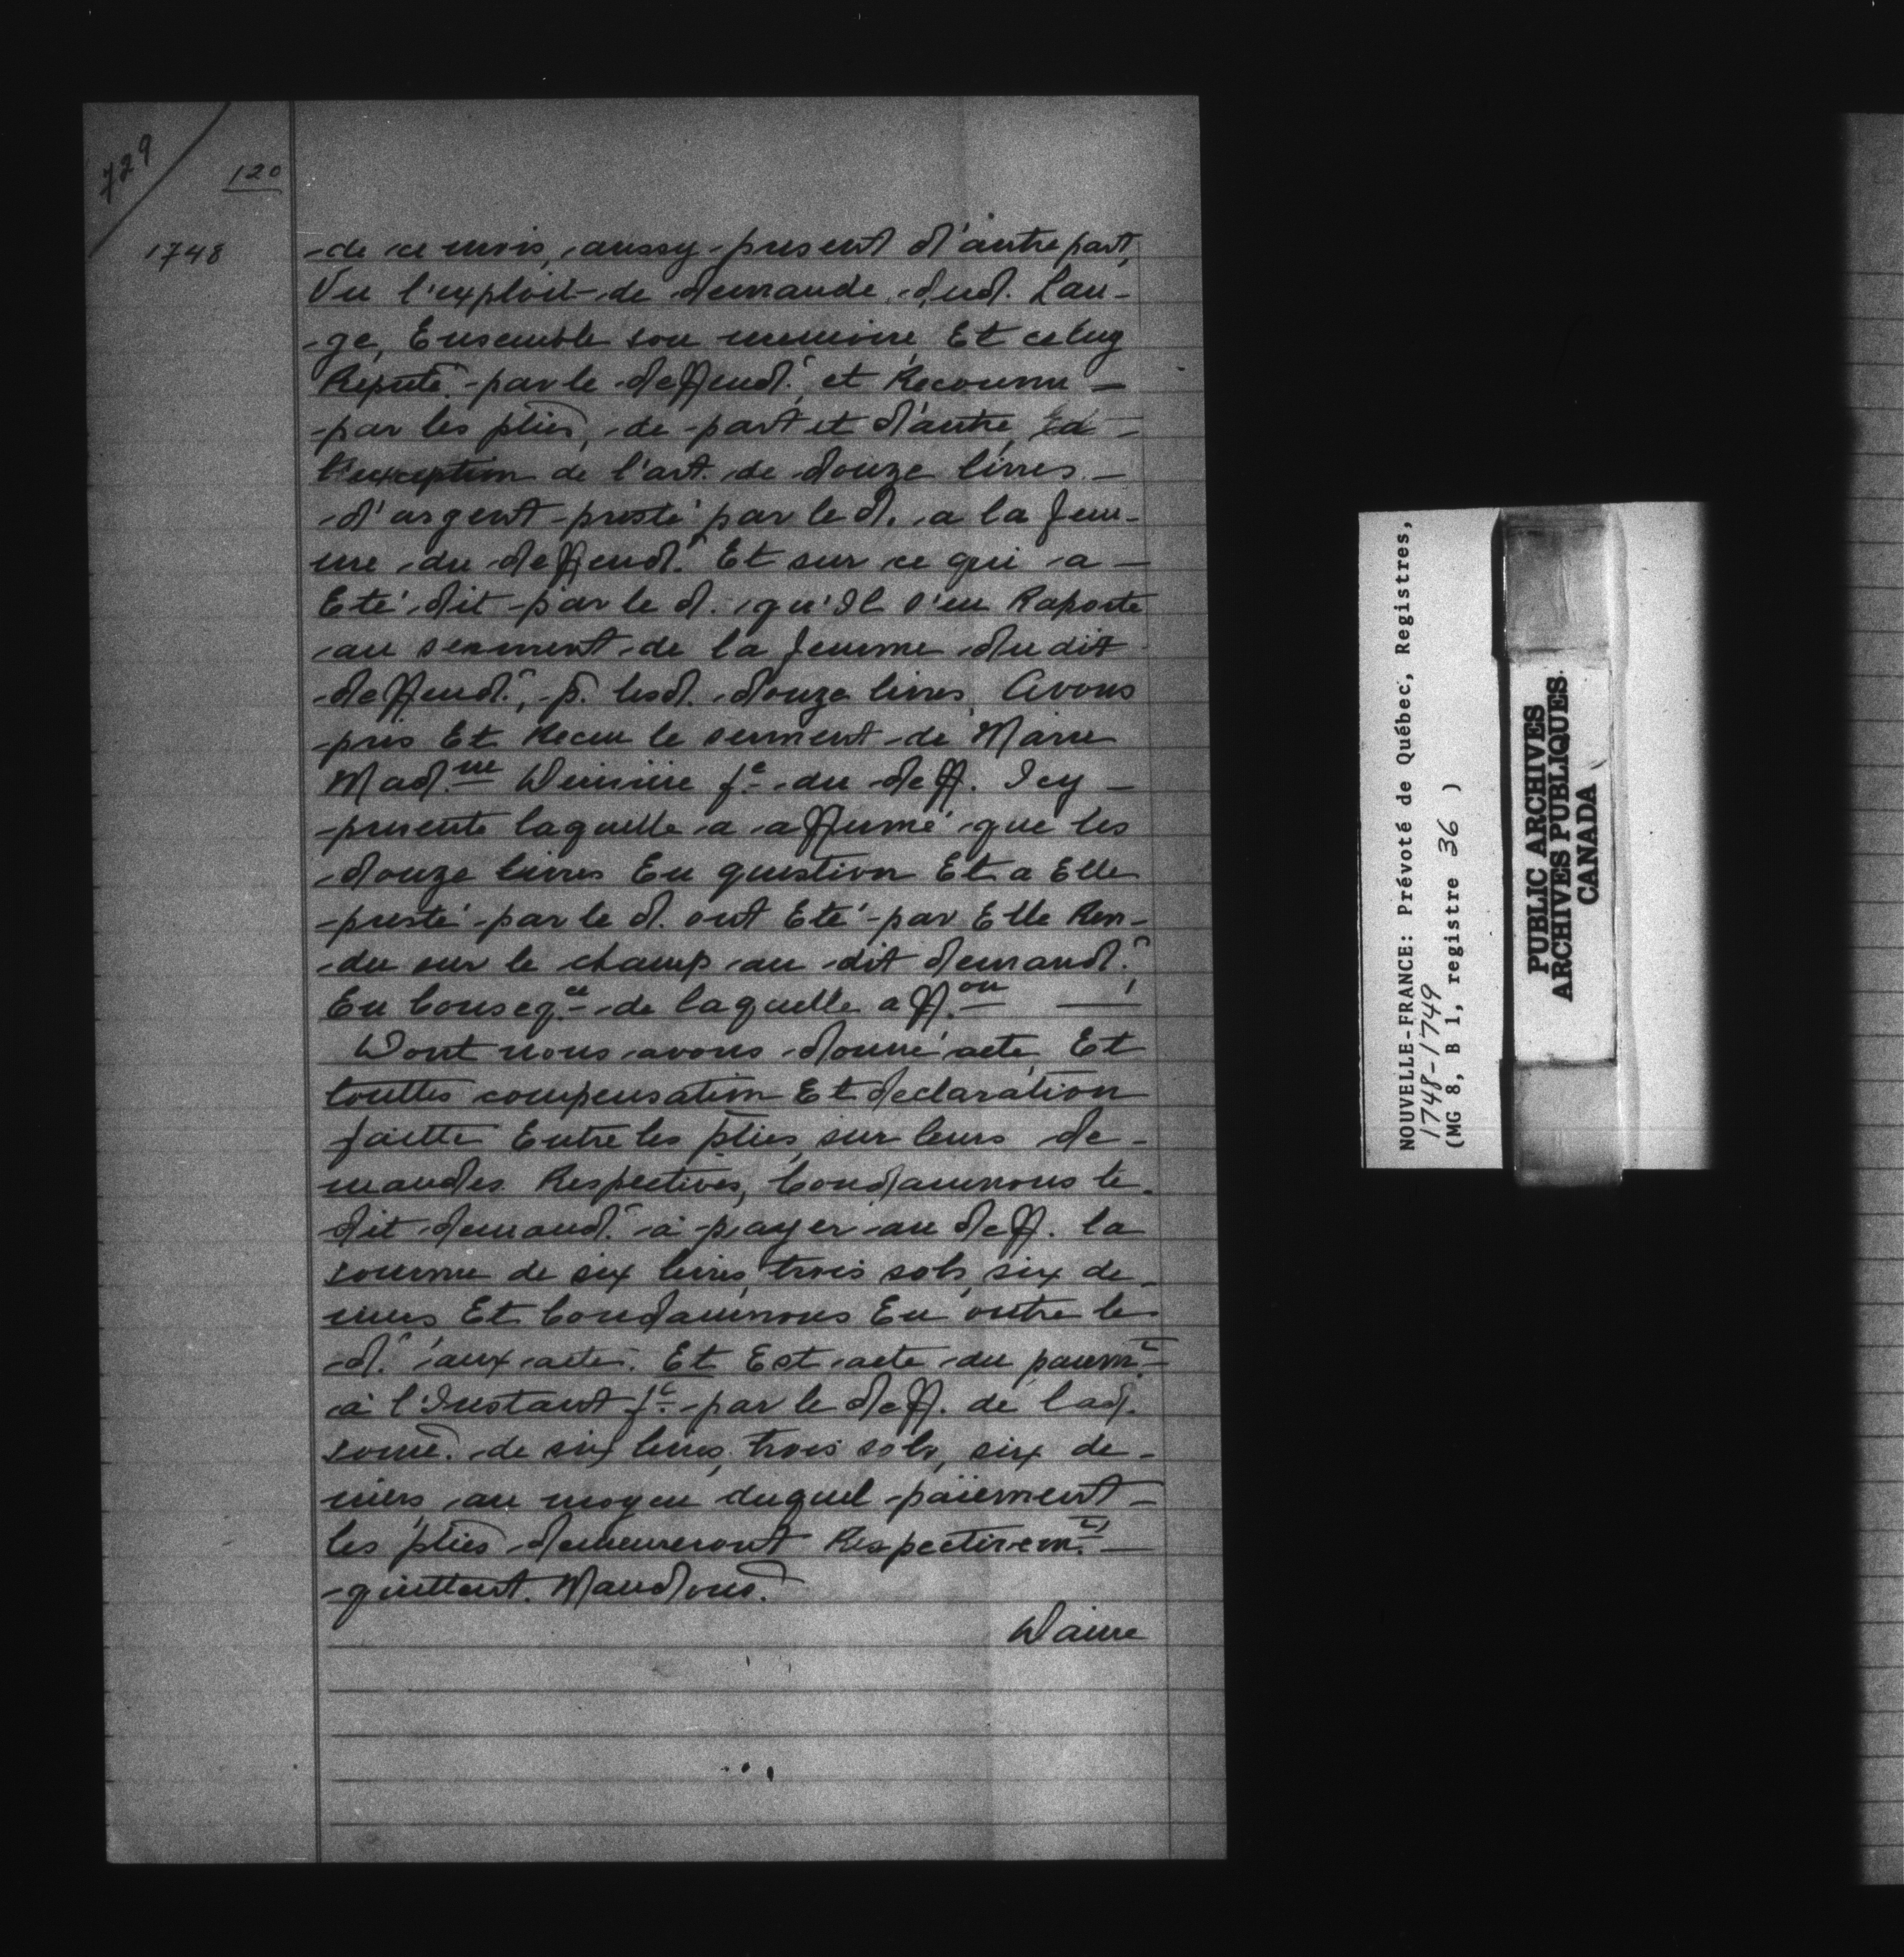 729
120
1748
de ce mois, aussy present d'autre part,
Vu l'exploit de demande dud. Lan-
ge, Ensemble son memoire Et celuy
par le deffend.^r et Reconnu
par les pties, de part et d'autre, Ed
l'exception de l'art. de douze livres
d'argent presté par le d. a la fem-
me du deffend.^r Et sur ce qui a
Eté dit par le d. qu'Il s'en Raporte
au serment de la femme du dit
deffend.^r, p. lesd. douze livres, Avons
pris Et Receu le serment de Marie
Mad.^ne f.^e du deff. Icy
presente laquelle a affirmé que les
douze livres En question Et a Elle
presté par le d. ont Eté par Elle Ren-
du sur le champ au dit demand.^r,
En Conseq.^ce de laquelle aff.^on
Dont nous avons donné acte Et
touttes compensation Et declaration
faitte Entre les pties, sur leurs de-
mandes Respectives, Condamnons le
dit demand.^r à payer au deff. la
somme de six livres, trois sols, six de-
niers Et Condamnons En outre le
d.^r aux acte. Et Est acte du paiem.^t
à l'Instant f.^t par le deff. de lad.
some. de six livres, trois sols, six de-
niers, au moyen duquel paiement
les pties demeureront Respectivem.^t
quittent. Mandons.
Daine
NOUVELLE-FRANCE: Prévoté de Québec, Registres,
1748-1749
(MG 8, B 1, registre 36 )
PUBLIC ARCHIVES
ARCHIVES PUBLIQUES
CANADA